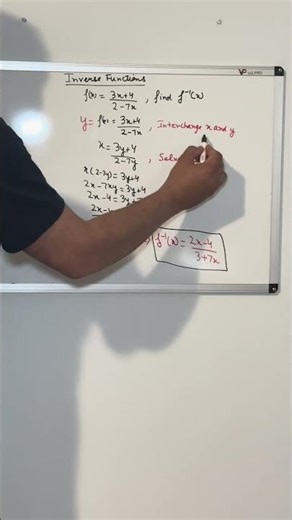 Inverse Functions
f(x) = 3x+4 / 2-7x , find f⁻¹(x)
y = f(x) = 3x+4 / 2-7x , Interchange x and y
x = 3y+4 / 2-7y ,
x(2-7y) = 3y+4
2x-7xy = 3y+4
2x-4 = 3y+
2x-4
f⁻¹(x) = 2x-4 / 3+7x